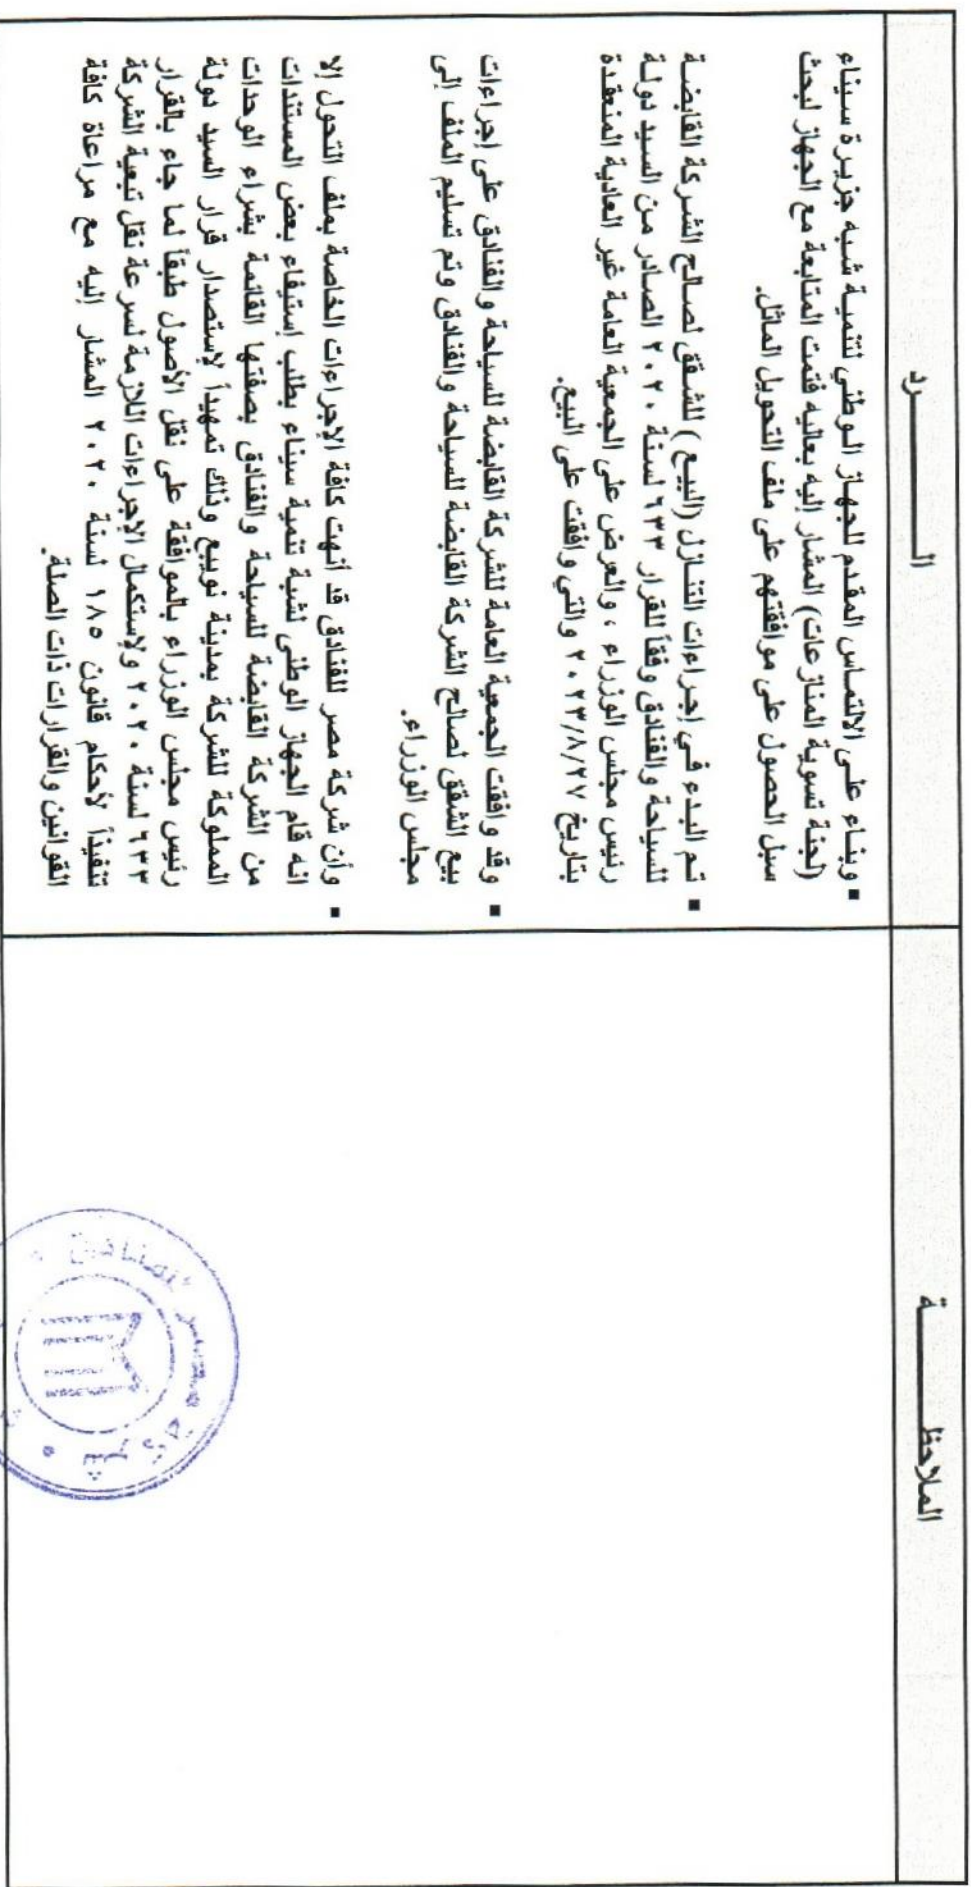 الملاحظـــــة
الـــــــــرد
▪ وبناء على الالتماس المقدم للجهاز الوطني لتنمية شبه جزيرة سيناء
(لجنة تسوية المنازعات) المشار إليه بعاليه فتمت المتابعة مع الجهاز لبحث
سبل الحصول على موافقتهم على ملف التحويل الماثل.
▪ تم البدء في إجراءات التنازل (البيع) للشقق لصالح الشركة القابضة
للسياحة والفنادق وفقاً للقرار ٦٣٣ لسنة ٢٠٢٠ الصادر من السيد دولة
رئيس مجلس الوزراء ، والعرض على الجمعية العامة غير العادية المنعقدة
بتاريخ ٢٠٢٣/٨/٢٧ والتي وافقت على البيع.
▪ وقد وافقت الجمعية العامة للشركة القابضة للسياحة والفنادق على إجراءات
بيع الشقق لصالح الشركة القابضة للسياحة والفنادق وتم تسليم الملف إلى
مجلس الوزراء.
▪ وأن شركة مصر للفنادق قد أنهت كافة الإجراءات الخاصة بملف التحول إلا
انه قام الجهاز الوطنى لشبة تنمية سيناء بطلب إستيفاء بعض المستندات
من الشركة القابضة للسياحة والفنادق بصفتها القائمة بشراء الوحدات
المملوكة للشركة بمدينة نويبع وذلك تمهيداً لإستصدار قرار السيد دولة
رئيس مجلس الوزراء بالموافقة على نقل الأصول طبقاً لما جاء بالقرار
٦٣٣ لسنة ٢٠٢٠ ولإستكمال الإجراءات اللازمة لسرعة نقل تبعية الشركة
تنفيذاً لأحكام قانون ١٨٥ لسنة ٢٠٢٠ المشار إليه مع مراعاة كافة
القوانين والقرارات ذات الصلة.
شركة مصر للفنادق